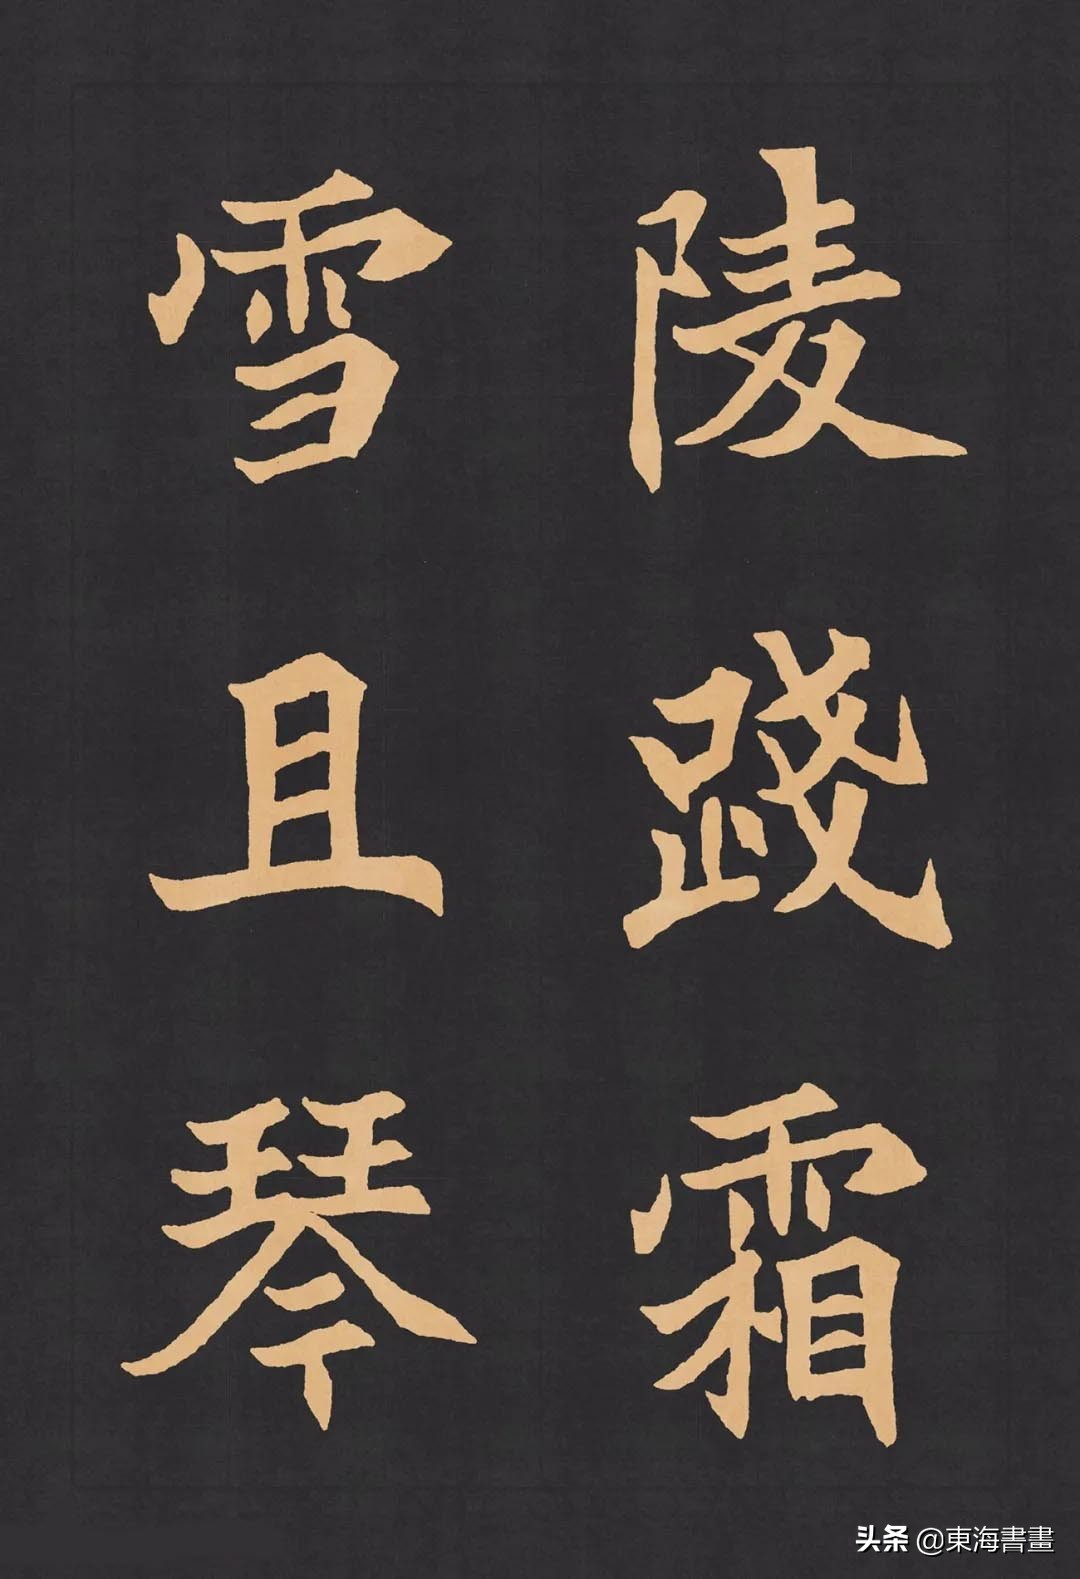 陵踐霜
雪且琴
头条 @東海書畫